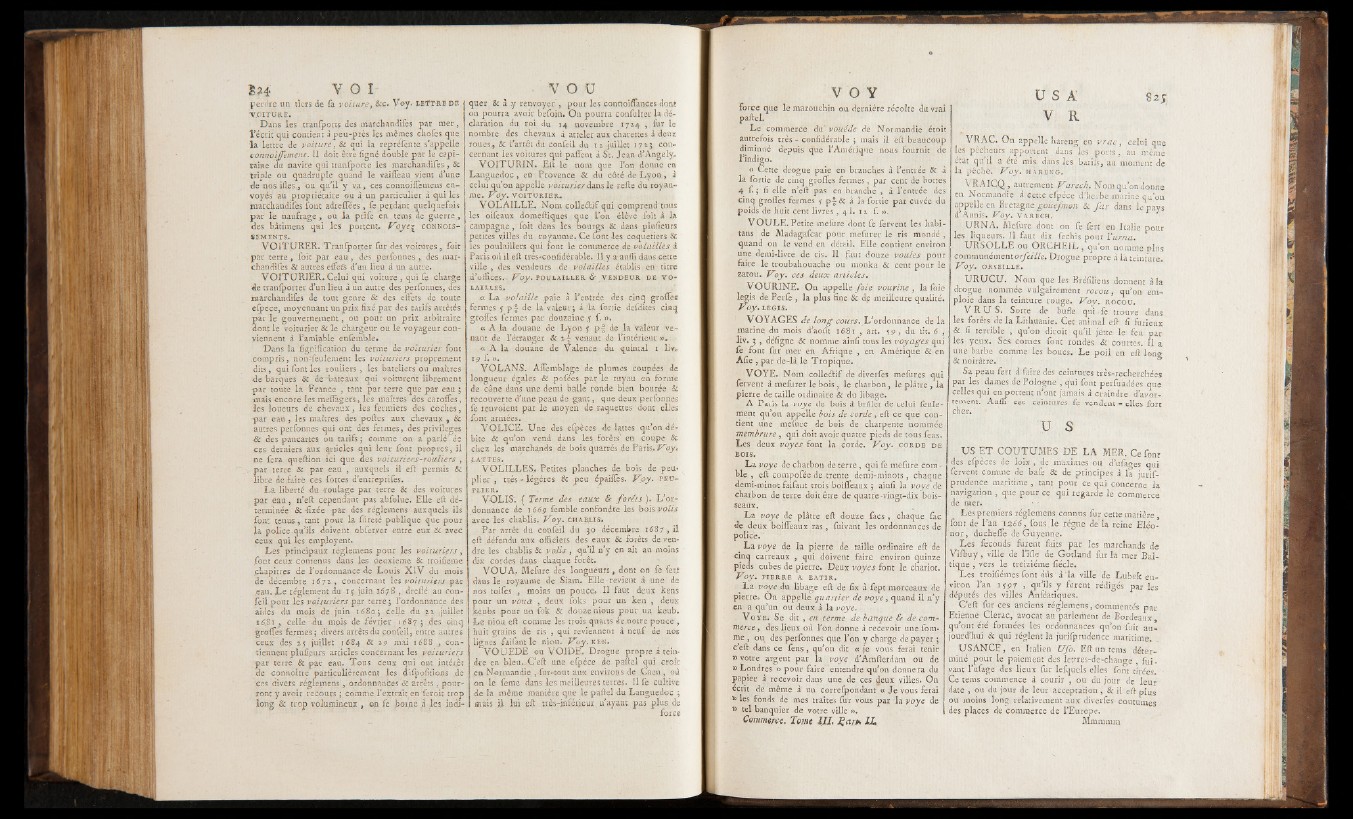 824 V O I
perdre un tiers de sa voiture, &c. Voy. LETTRE DE
VOITURE.
Dans les transports des marchandises par mer,
l'écrit qui contient à peu-près les mêmes choses que
la lettre de voiture, & qui la représente s'appelle
connoissement. Il doit être signé double par le capi-
taine du navire qui transporte les marchandises, &
triple ou quadruple quand le vaisseau vient d'une
de nos isles, ou qu'il y va, ces connoissemens en-
voyés au propriétaire ou à un particulier à qui les
marchandises sont adressées, se perdant quelquefois
par le naufrage, ou la prise en tems de guerre,
des bâtimens qui les portent. Voyez CONNOIS-
SEMENTS.
VOITURER. Transporter sur des voitures, soit
par terre, soit par eau, des personnes, des mar-
chandises & autres effets d'un lieu à un autre.
VOITURIER. Celui qui voiture, qui se charge
de transporter d'un lieu à un autre des personnes, des
marchandises de tout genre & des effets de toute
espèce, moyennant un prix fixé par des tarifs arrêtés
par le gouvernement, ou pour un prix arbitraire
dont le voiturier & le chargeur ou le voyageur con-
viennent à l'amiable ensemble.
Dans la signification du terme de voiturier sont
compris, non-seulement les voituriers proprement
dits, qui sont les rouliers, les bateliers ou maîtres
de barques & de bateaux qui voiturent librement
par toute la France, tant par terre que par eau ;
mais encore les messagers, les maîtres des carosses,
les loueurs de chevaux, les fermiers des coches,
par eau, les maîtres des postes aux chevaux, &
autres personnes qui ont des fermes, des privilèges
& des pancartes ou tarifs ; comme on a parlé de
ces derniers aux articles qui leur sont propres, il
ne sera question ici que des voituriers-rouliers,
par terre & par eau, auxquels il est permis &
libre de faire ces sortes d'entreprises.
La liberté du roulage par terre & des voitures
par eau, n'est cependant pas absolue. Elle est dé-
terminée & fixée par des réglemens auxquels ils
sont tenus, tant pour la sûreté publique que pour
la police qu'ils doivent observer entre eux & avec
ceux qui les employent.
Les principaux réglemens pour les voituriers,
sont ceux contenus dans les deuxième & troisième
chapitres de l'ordonnance de Louis XIV du mois
de décembre 1672, concernant les voituriers par
eau. Le réglement du 25 juin 1678, dressé au con-
seil pour les voituriers par terre ; l'ordonnance des
aides du mois de juin 1680, celle du 22 juillet
1681, celle du mois de février 1687 ; des cinq
grosses fermes ; divers arrêts du conseil, entre autres
ceux des 25 juillet 1684 & 20 mai 1688, con-
tiennent plusieurs articles concernant les voituriers
par terre & par eau. Tous ceux qui ont intérêt
de connoître particulièrement les dispositions de
ces divers réglemens, ordonnances & arrêts, pour-
ront y avoir recours ; comme l'extrait en seroit trop
long & trop volumineux, on se borne à les indi-
V O U
quer & à y renvoyer, pour les connoissances dont
on pourra avoir besoin. On pourra consulter la dé-
claration du roi du 14 novembre 1724, sur le
nombre des chevaux à atteler aux charettes à deux
roues, & l'arrêt du conseil du 12 juillet 1723 con-
cernant les voitures qui passent à St. Jean d'Angely.
VOITURIN. Est le nom que l'on donne en
Languedoc, en Provence & du côté de Lyon, à
celui qu'on appelle voiturier dans le reste du royau-
me. Voy. VOITURIER.
VOLAILLE. Nom collectif qui comprend tous
les oiseaux domestiques que l'on élève soit à la
campagne, soit dans les bourgs & dans plusieurs
petites villes du royaume. Ce sont les coquetiers &
les poulaillers qui font le commerce de volailles à
Paris où il est très-considérable. Il y a aussi dans cette
ville, des vendeurs de volailles établis en titre
d'offices. Voy. POULAILLER & VENDEUR DE VO-
LAILLES.
« La volaille paie à l'entrée des cinq grosses
fermes 5 p 0/0 de la valeur ; à la sortie desdites cinq
grosses fermes par douzaine 5 s. ».
« A la douane de Lyon 5 p 0/0 de la valeur ve-
nant de l'étranger & 2 1/2 venant de l'intérieur ».
« A la douane de Valence du quintal 1 liv.
19 s. ».
VOLANS. Assemblage de plumes coupées de
longueur égales & posées par le tuyau en forme
de cône dans une demi balle ronde bien bourée &
recouverte d'une peau de gant, que deux personnes
se renvoient par le moyen de raquettes dont elles
sont armées.
VOLICE. Une des espèces de lattes qu'on dé-
bite & qu'on vend dans les forêts en coupe &
chez les marchands de bois quarrés de Paris. Voy.
LATTES.
VOLILLES. Petites planches de bois de peu-
plier, très-légères & peu épaisses. Voy. PEU-
PLIER.
VOLIS. ( Terme des eaux & forêts ). L'or-
donnance de 1669 semble confondre les bois volis
avec les chablis. Voy. CHABLIS.
Par arrêt du conseil du 30 décembre 1687, il
est défendu aux officiers des eaux & forêts de ven-
dre les chablis & volis, qu'il n'y en ait au moins
dix cordes dans chaque forêt.
VOUA. Mesure des longueurs, dont on se sert
dans le royaume de Siam. Elle revient à une de
nos toises, moins un pouce. Il faut deux kens
pour un voua, deux soks pour un ken, deux
keubs pour un sok & douze nious pour un keub.
Le niou est comme les trois quarts de notre pouce,
huit grains de ris, qui reviennent à neuf de nos
lignes faisant le niou. Voy. KEN.
VOUEDE ou VOIDE. Drogue propre à tein-
dre en bleu. C'est une espèce de pastel qui croît
en Normandie, sur-tout aux environs de Caen, où
on le seme dans les meilleures terres. Il se cultive
de la même manière que le pastel du Languedoc ;
mais il lui est très-inférieur n'ayant pas plus de
force
V O Y
force que le marouchin ou dernière récolte du vrai
pastel.
Le commerce du vouéde de Normandie étoit
autrefois très-considérable ; mais il est beaucoup
diminué depuis que l'Amérique nous fournit de
l'indigo.
« Cette drogue paie en branches à l'entrée & à
la sortie de cinq grosses fermes, par cent de bottes
4 s. ; si elle n'est pas en branche, à l'entrée des
cinq grosses fermes 5 p 0/0 & à la sortie par cuvée du
poids de huit cent livres, 4 l. 12 s. ».
VOULE. Petite mesure dont se servent les habi-
tans de Madagascar pour mesurer le ris mondé,
quand on le vend en détail. Elle contient environ
une demi-livre de ris. Il faut douze voules pour
faire le troubahouache ou monka & cent pour le
zatou. Voy. ces deux articles.
VOURINE. On appelle soie vourine, la soie
legis de Perse, la plus fine & de meilleure qualité.
Voy. LEGIS.
VOYAGES de long cours. L'ordonnance de la
marine du mois d'août 1681, art. 59, du tit. 6,
liv. 3, désigne & nomme ainsi tous les voyages qui
se font sur mer en Afrique, en Amérique & en
Asie, par de-là le Tropique.
VOYE. Nom collectif de diverses mesures qui
servent à mesurer le bois, le charbon, le plâtre, la
pierre de taille ordinaire & du libage.
A Paris la voye de bois à brûler de celui seule-
ment qu'on appelle bois de corde, est ce que con-
tient une mesure de bois de charpente nommée
membrure, qui doit avoir quatre pieds de tous sens.
Les deux voyes font la corde. Voy. CORDE DE
BOIS.
La voye de charbon de terre, qui se mesure com-
ble, est composée de trente demi-minots, chaque
demi-minot faisant trois boisseaux ; ainsi la voye de
charbon de terre doit être de quatre-vingt-dix bois-
seaux.
La voye de plâtre est douze sacs, chaque sac
de deux boisseaux ras, suivant les ordonnances de
police.
La voye de la pierre de taille ordinaire est de
cinq carreaux, qui doivent faire environ quinze
pieds cubes de pierre. Deux voyes font le chariot.
Voy. PIERRE A BATIR.
La voye du libage est de six à sept morceaux de
pierre. On appelle quartier de voye, quand il n'y
en a qu'un ou deux à la voye.
VOYE. Se dit, en terme de banque & de com-
merce, des lieux où l'on donne à recevoir une som-
me, ou des personnes que l'on y charge de payer ;
c'est dans ce sens, qu'on dit « je vous ferai tenir
» votre argent par la voye d'Amsterdam ou de
» Londres » pour faire entendre qu'on donnera du
papier à recevoir dans une de ces deux villes. On
écrit de même à un correspondant « Je vous ferai
» les fonds de mes traites sur vous par la voye de
» tel banquier de votre ville ».
Commerce. Tome III. Part. II.
U S A 825
V R
VRAC. On appelle hareng en vrac, celui que
les pêcheurs apportent dans les ports, au même
état qu'il a été mis dans les barils, au moment de
la pêche. Voy. HARENG.
VRAICQ, autrement Varech. Nom qu'on donne
en Normandie à cette espèce d'herbe marine qu'on
appelle en Bretagne gouesmon & sar dans le pays
d'Aunis. Voy. VARECH.
URNA. Mesure dont on se sert en Italie pour
les liqueurs. Il faut dix sechis pour l'urna.
URSOLLE ou ORCHEIL, qu'on nomme plus
communément orseille. Drogue propre à la teinture.
Voy. ORSEILLE.
URUCU. Nom que les Brésiliens donnent à la
drogue nommée vulgairement rocou, qu'on em-
ploie dans la teinture rouge. Voy. ROCOU.
V R U S. Sorte de bufle qui se trouve dans
les forêts de la Lithuanie. Cet animal est si furieux
& si terrible, qu'on diroit qu'il jette le feu par
les yeux. Ses cornes sont rondes & courtes. Il a
une barbe comme les boucs. Le poil en est long
& noirâtre.
Sa peau sert à faire des ceintures très-recherchées
par les dames de Pologne, qui sont persuadées que
celles qui en portent n'ont jamais à craindre d'avor-
tement. Aussi ces ceintures se vendent-elles fort
cher.
U S
US ET COUTUMES DE LA MER. Ce sont
des espèces de loix, de maximes ou d'usages qui
servent comme de base & de principes à la juris-
prudence maritime, tant pour ce qui concerne la
navigation, que pour ce qui regarde le commerce
de mer.
Les premiers réglemens connus sur cette matière,
sont de l'an 1266, sous le règne de la reine Eléo-
nor, duchesse de Guyenne.
Les seconds furent faits par les marchands de
Wisbuy, ville de l'isle de Gotland sur la mer Bal-
tique, vers le treizième siècle.
Les troisièmes sont dûs à la ville de Lubek en-
viron l'an 1597, qu'ils y furent rédigés par les
députés des villes Anséatiques.
C'est sur ces anciens réglemens, commentés par
Etienne Clerac, avocat au parlement de Bordeaux,
qu'ont été formées les ordonnances qu'on suit au-
jourd'hui & qui réglent la jurisprudence maritime.
USANCE, en Italien Uso. Est un tems déter-
miné pour le paiement des lettres-de-change, sui-
vant l'usage des lieux sur lesquels elles sont tirées.
Ce tems commence à courir, ou du jour de leur
date, ou du jour de leur acceptation, & il est plus
ou moins long relativement aux diverses coutumes
des places de commerce de l'Europe.
Mmmmm